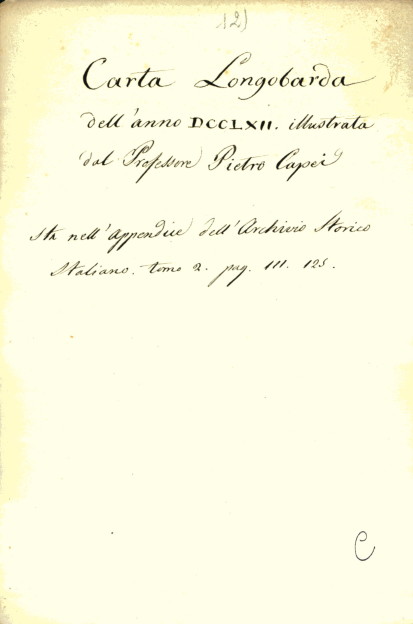 12)
Carta Longobarda
dell'anno DCCLXII. illustrata
dal Professore Pietro Capei
sta nell'Appendice dell'Archivio Storico
Italiano. tomo 2. pag. 111. 125.
C